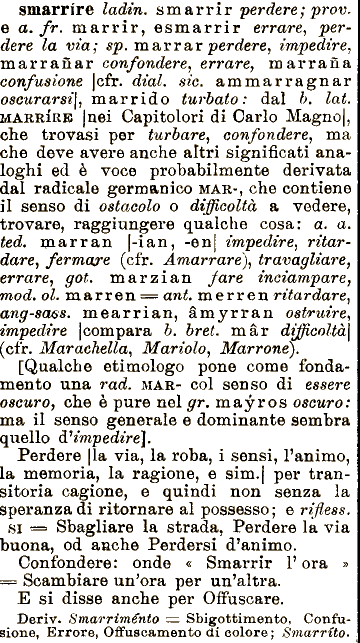 smarríre ladin. smarrir perdere; prov.
e a. fr. marrir, esmarrir errare, per-
dere la via; sp. marrar perdere, impedire,
marrañar confondere, errare, marraña
confusione |cfr. dial. sic. ammarragnar
oscurarsi|, marrido turbato: dal b. lat.
MARRÍRE |nei Capitolori di Carlo Magno|,
che trovasi per turbare, confondere, ma
che deve avere anche altri significati ana-
loghi ed è voce probabilmente derivata
dal radicale germanico MAR-, che contiene
il senso di ostacolo o difficoltà a vedere,
trovare, raggiungere qualche cosa: a. a.
ted. marran |-ian, -en| impedire, ritar-
dare, fermare (cfr. Amarrare), travagliare,
errare, got. marzian fare inciampare,
mod. ol. marren = ant. merren ritardare,
ang-sass. mearrian, âmyrran ostruire,
impedire |compara b. bret. mâr difficoltà|
(cfr. Marachella, Mariolo, Marrone).
[Qualche etimologo pone come fonda-
mento una rad. MAR- col senso di essere
oscuro, che è pure nel gr. maýros oscuro:
ma il senso generale e dominante sembra
quello d'impedire].
Perdere |la via, la roba, i sensi, l'animo,
la memoria, la ragione, e sim.| per tran-
sitoria cagione, e quindi non senza la
speranza di ritornare al possesso; e rifless.
SI = Sbagliare la strada, Perdere la via
buona, od anche Perdersi d'animo.
Confondere: onde « Smarrir l'ora »
= Scambiare un'ora per un'altra.
E si disse anche per Offuscare.
Deriv. Smarriménto = Sbigottimento, Confu-
sione, Errore, Offuscamento di colore; Smarríto.